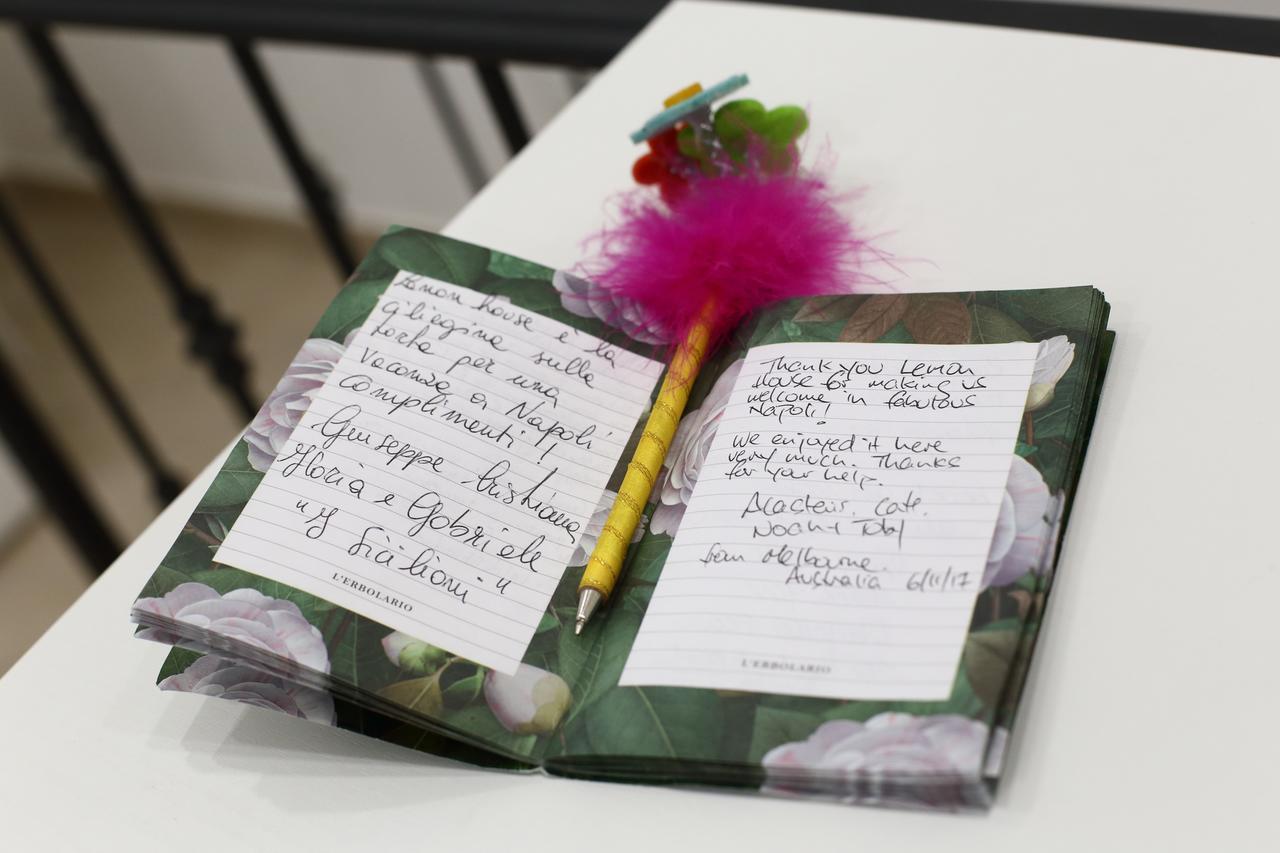 Lemon house è la
ciliegina sulla
torta per una
vacanza a Napoli
complimenti!
Giuseppe Cristiana
Gloria e Gabriele
"I Siciliani"
L'ERBOLARIO
Thank you Lemon
House for making us
welcome in fabulous
Napoli!
We enjoyed it here
very much. Thanks
for your help.
Alasteir. Cate.
Noah + Toby
from Melbourne.
Australia 6/11/17
L'ERBOLARIO